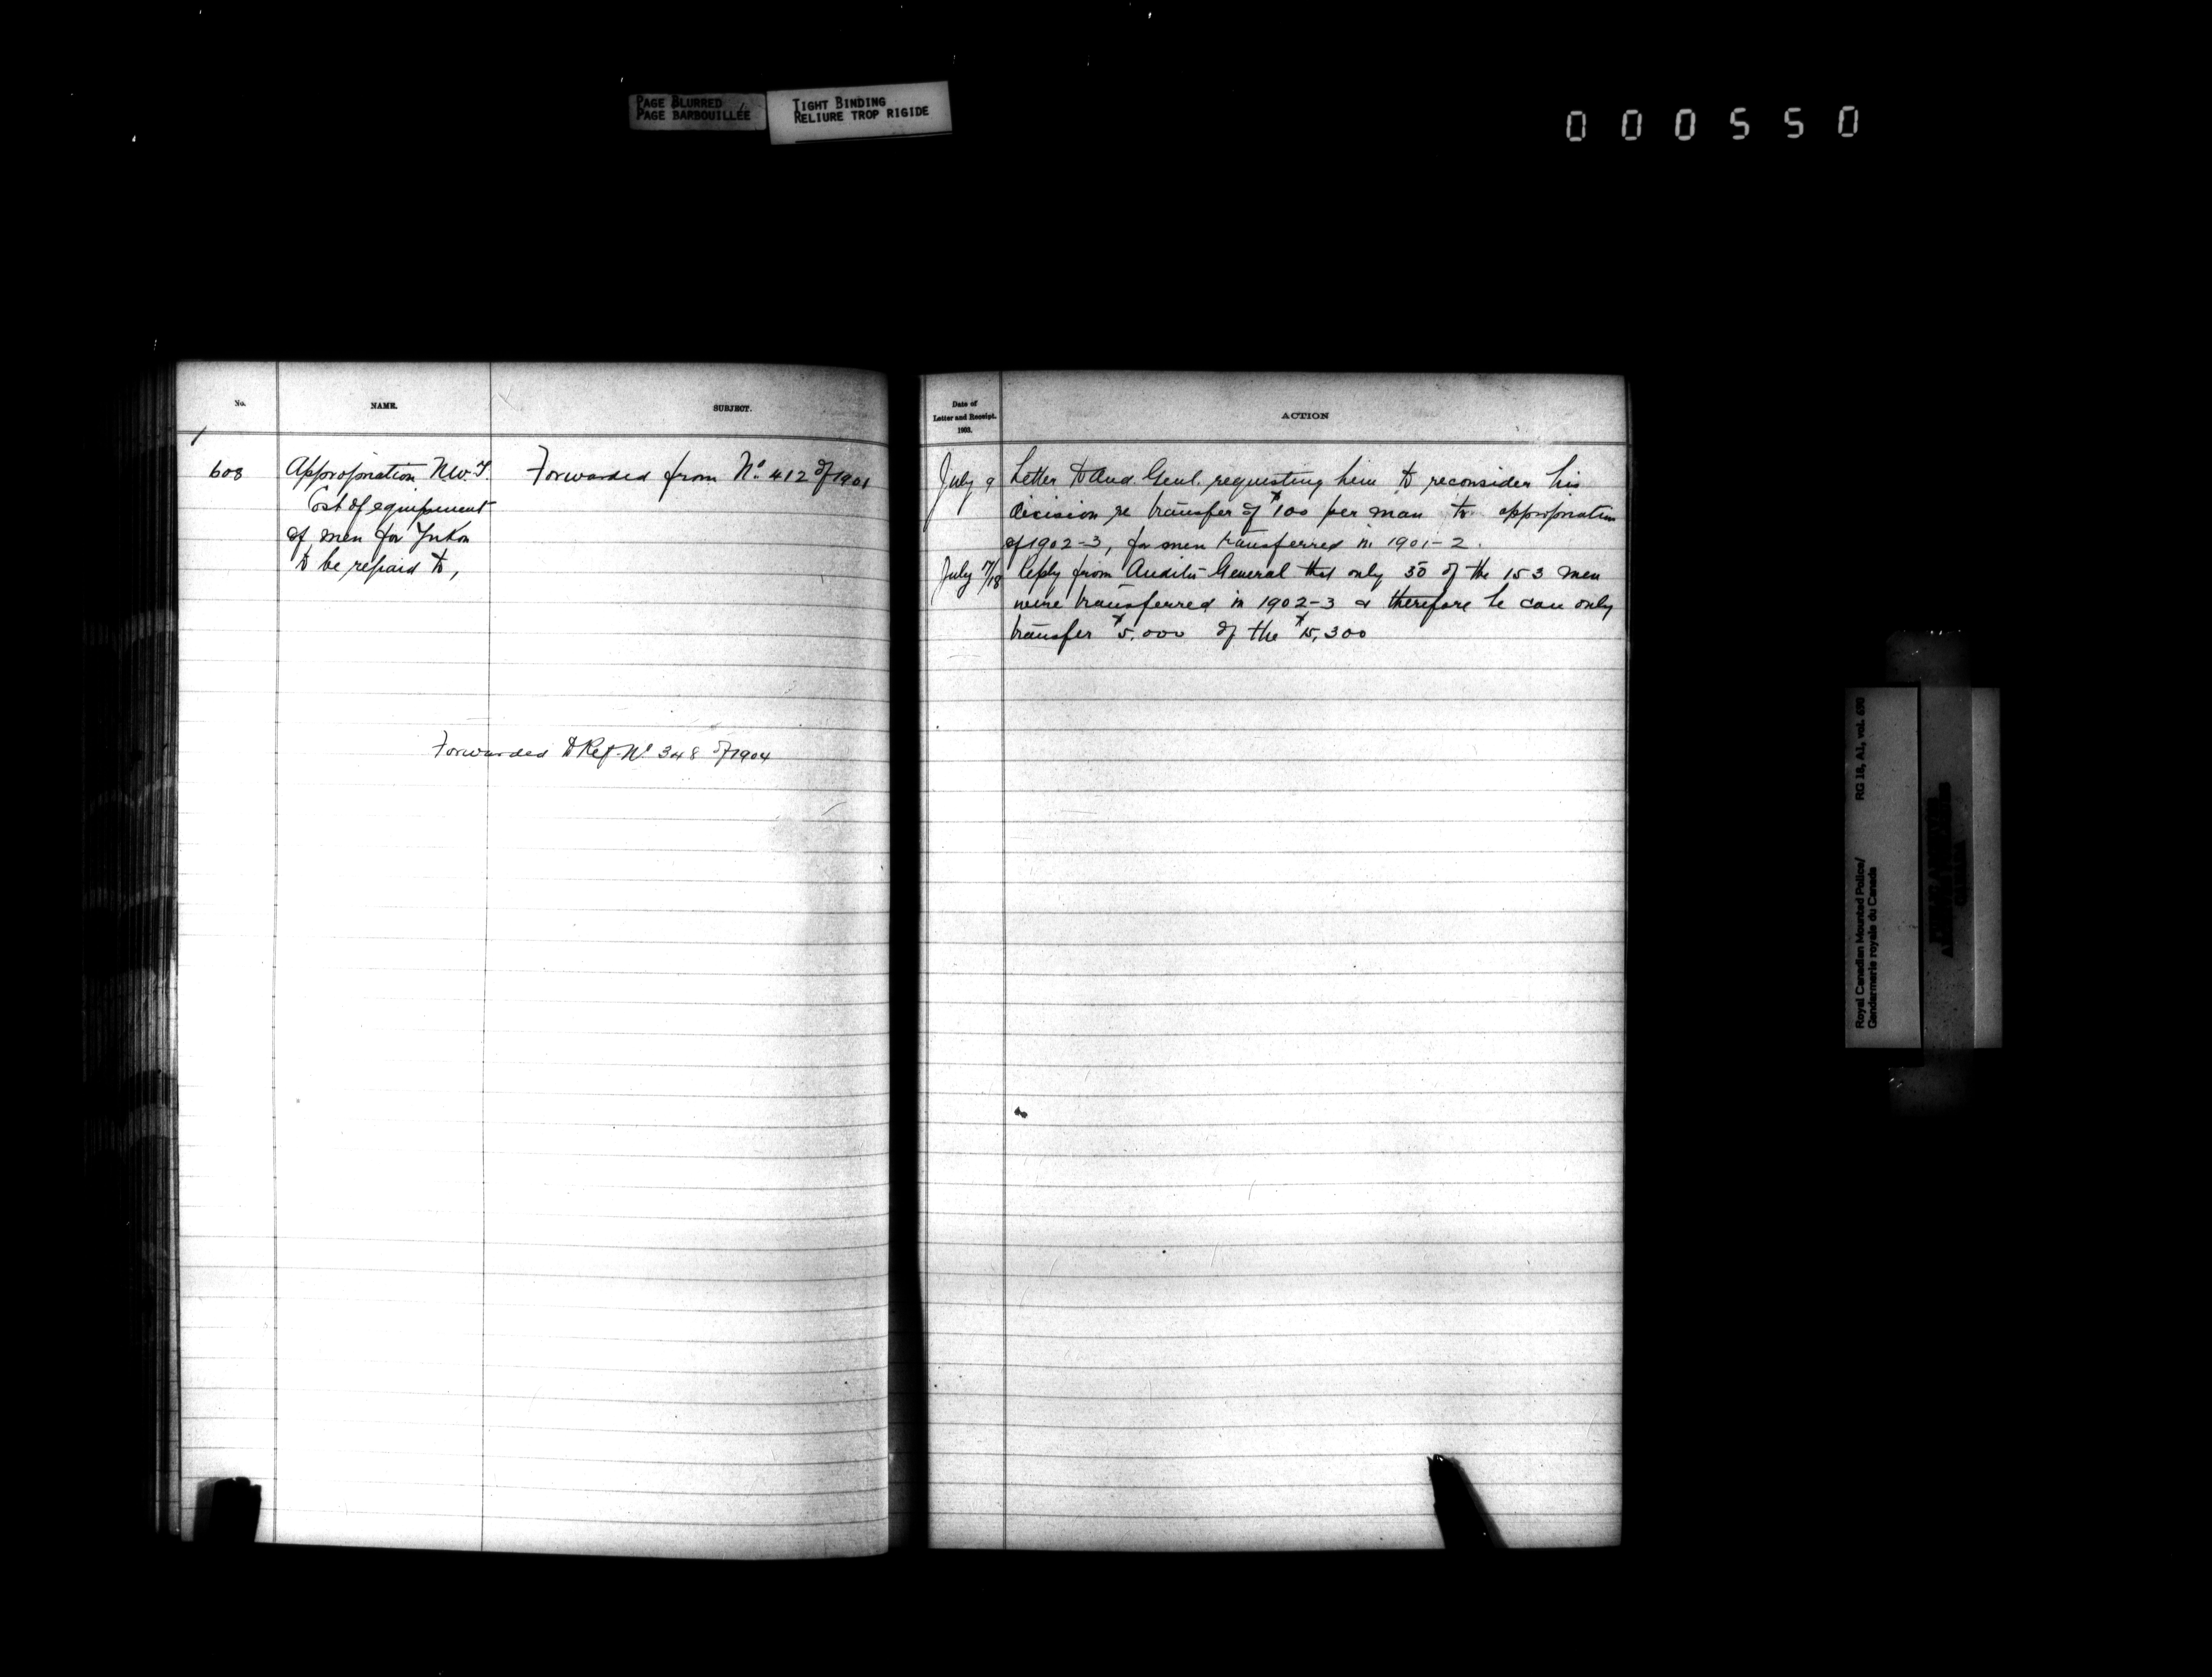 PAGE BLURRED
PAGE BARBOUILLÉE
TIGHT BINDING
RELIURE TROP RIGIDE
000550
No.
NAME.
SUBJECT.
608
Appropriation N.W.T.
Cost of equipment
of men for Yukon
to be repaid to,
Forwarded from No. 412 of 1901
Forwarded to Ref. No. 348 of 1904
Date of
Letter and Receipt.
1903.
ACTION
July 9 Letter to Aud. Genl. requesting him to reconsider his
decision re transfer of $100 per man to appropriation
of 1902-3, for men transferred in 1901-2.
July 17/18 Reply from Auditor General that only 50 of the 153 men
were transferred in 1902-3 & therefore he can only
transfer $5,000 of the $15,300
Royal Canadian Mounted Police/
Gendarmerie royale du Canada
RG 18, A1, vol. 650